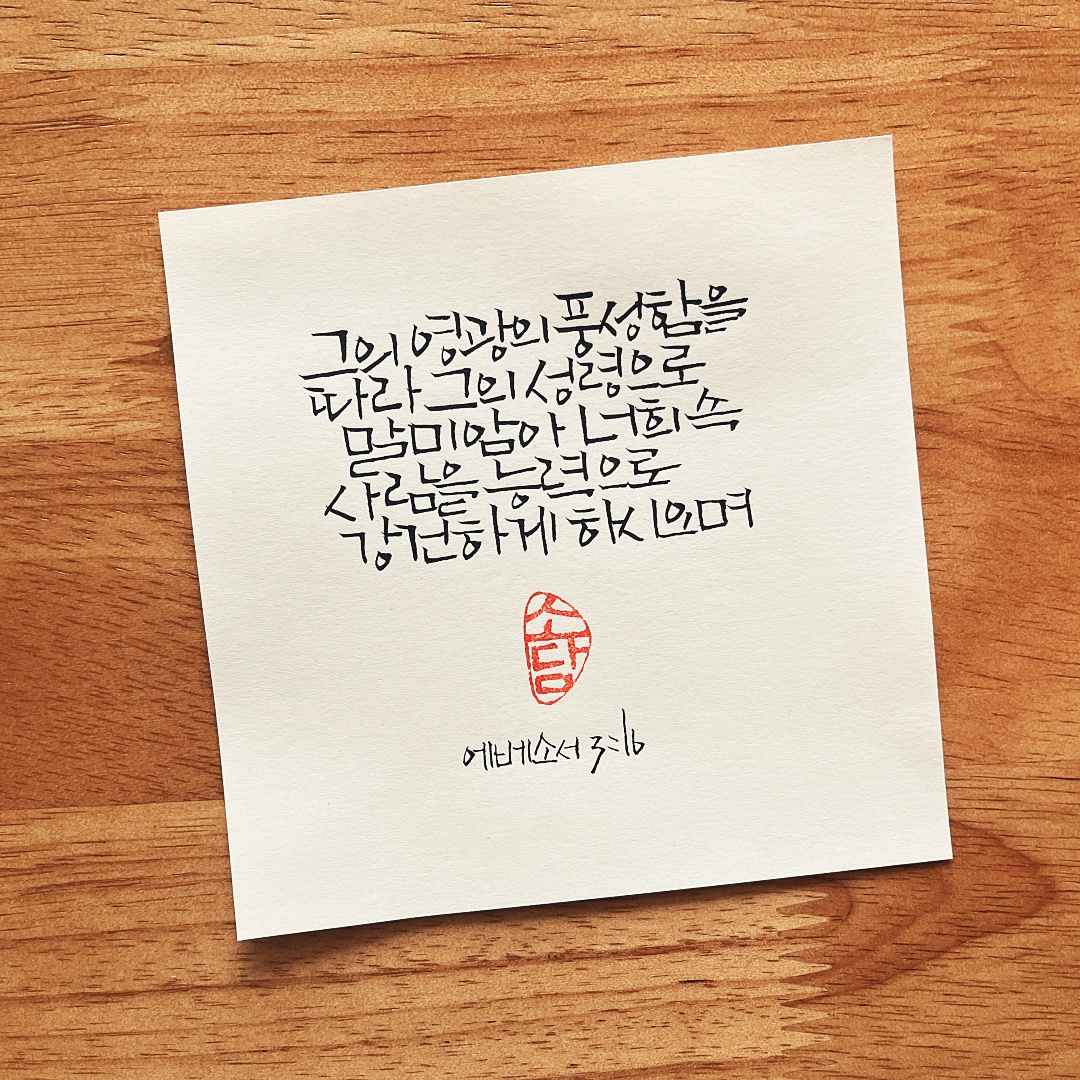 그의 영광의 풍성함을
따라 그의 성령으로
말미암아 너희 속
사람을 능력으로
강건하게 하시오며
소담
에베소서 3:16